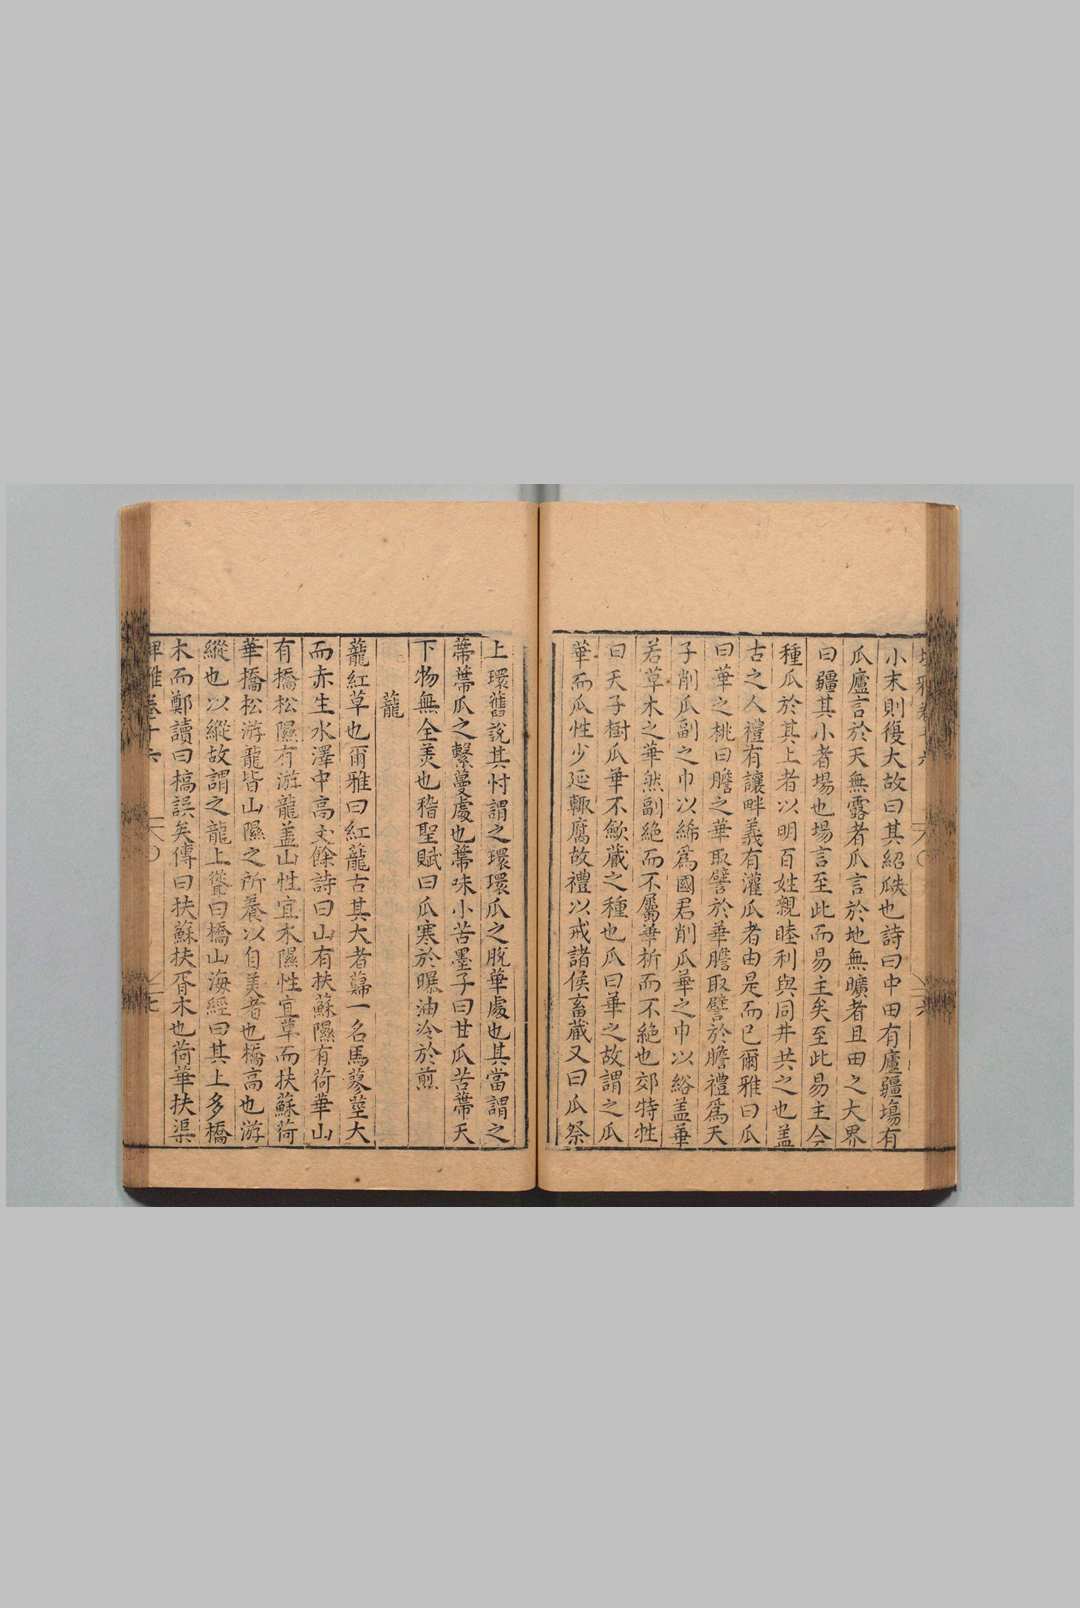 小末則復大故曰其紹瓞也詩曰中田有廬疆塲有
瓜廬言於天無露者瓜言於地無曠者且田之大界
曰疆其小者場也場言至此而易主矣至此易主今
種瓜於其上者以明百姓親睦利與同井共之也蓋
古之人禮有讓畔義有灌瓜者由是而已爾雅曰瓜
曰華之桃曰膽之華取譬於華膽取譬於膽禮爲天
子削瓜副之巾以絺爲國君削瓜華之巾以綌蓋華
若草木之華然副絶而不屬華析而不絶也郊特牲
曰天子樹瓜華不歛藏之種也瓜曰華之故謂之瓜
華而瓜性少延輙腐故禮以戒諸侯畜蔵又曰瓜祭
上環舊說其忖謂之環環瓜之脫華處也其當謂之
蔕蔕瓜之繫蔓處也蔕味小苦墨子曰甘瓜苦蔕天
下物無全羙也嵇聖賦曰瓜寒於曝油冷於煎
蘢
蘢紅草也爾雅曰紅蘢古其大者蘬一名馬蓼莖大
而赤生水澤中高丈餘詩曰山有扶蘇隰有荷華山
有橋松隰有游龍盖山性宜木隰性宜草而扶蘇荷
華橋松游龍皆山隰之所養以自美者也橋高也游
縱也以縱故謂之龍上聳曰橋山海經曰其上多橋
木而鄭讀曰槁誤矣傳曰扶蘇扶胥木也荷華扶渠
埤雅卷十六